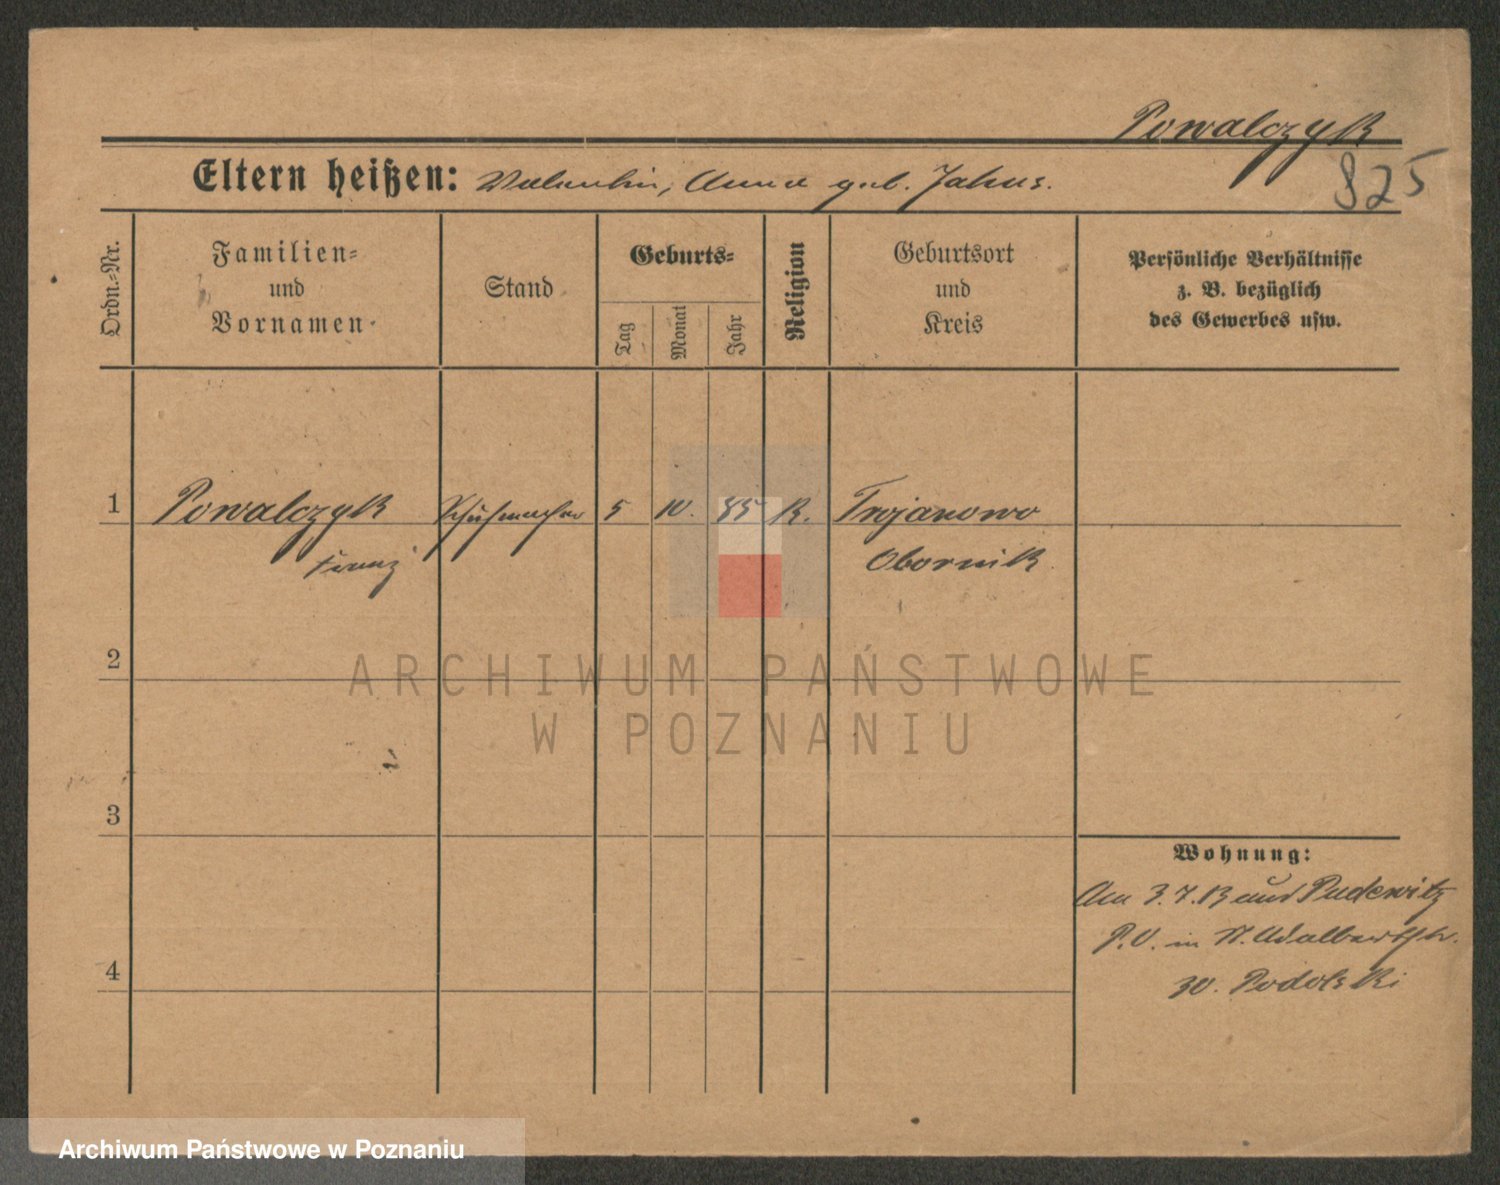 Powalczyk
825
Eltern heißen: Valentin, Anna geb. Jakus.
Ordn.-Nr.
Familien-
und
Vornamen
Stand
Geburts-
Tag
Monat
Jahr
Religion
Geburtsort
und
Kreis
Persönliche Verhältnisse
z. B. bezüglich
des Gewerbes usw.
1 Powalczyk Schuhmacher 5 10. 85 R. Trojanowo
Franz Obornik
2
3
4
Wohnung:
Am 3.7.13 aus Pudewitz
P.O. in St. Adalbertstr.
30. Podolski
ARCHIWUM PAŃSTWOWE
W POZNANIU
Archiwum Państwowe w Poznaniu